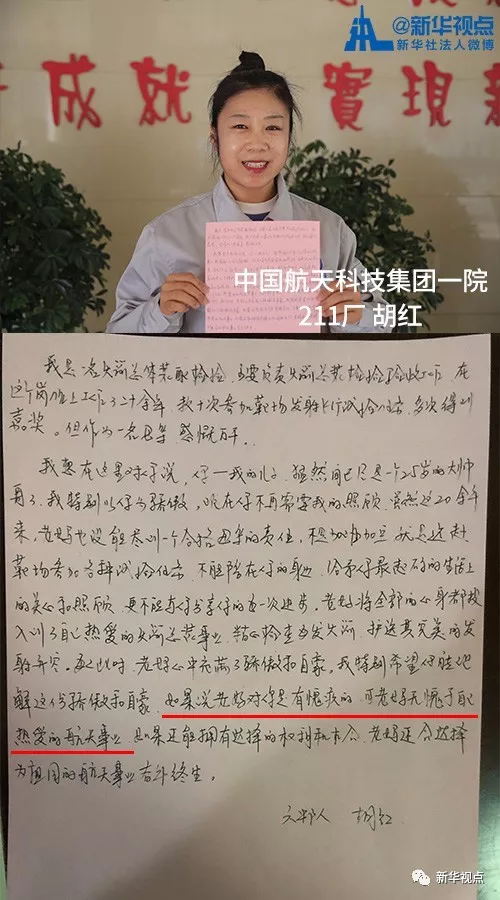 @新华视点
新华社法人微博
成就 實現新
中国航天科技集团一院
211厂 胡红
我是一名火箭总体装配检验,主要负责火箭总装检验验收工作.在
这个岗位上工作了二十余年,数十次参加靶场发射飞行试验任务,多次得到
嘉奖。但作为一名母亲 感慨万千.
我想在这里对仔说,仔—我的儿子,猛然间已经是一个25岁的大帅
哥了.我特别以仔为骄傲,现在仔不再需要我的照顾.虽然这20余年
来,老妈也没能尽到一个合格母亲的责任,不是加班加点就是远赴
靶场参加各种试验任务,不能陪在仔的身边,给予仔最起码的生活上
的关心和照顾,更不能与仔分享仔的每一次进步.老妈将全部的心身都投
入到了自己热爱的火箭总装事业,精心检查每发火箭,护送其完美的发
射升空.每到此时,老妈心中充满了骄傲和自豪.我特别希望仔能理
解这份骄傲和自豪.如果说老妈对你是有愧疚的,可老妈无愧于自己
热爱的航天事业.如果还能拥有选择的权利和机会,老妈还会选择
为祖国的航天事业奋斗终生。
胡红
新华视点